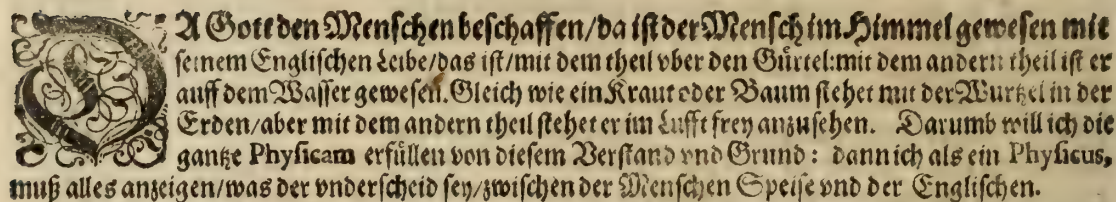 DA Gott den Menschen beschaffen/da ist der Mensch im Himmel gewesen mit
seinem Englischen Leibe/das ist/mit dem theil vber den Gürtel: mit dem andern theil ist er
auff dem Wasser gewesen. Gleich wie ein Kraut oder Baum stehet mit der Wurtzel in der
Erden/aber mit dem andern theil stehet er im Lufft frey anzusehen. Darumb will ich die
gantze Physicam erfüllen von diesem Verstand vnd Grund: dann ich als ein Physicus,
muß alles anzeigen/was der vnderscheid sey/zwischen der Menschen Speise vnd der Englischen.